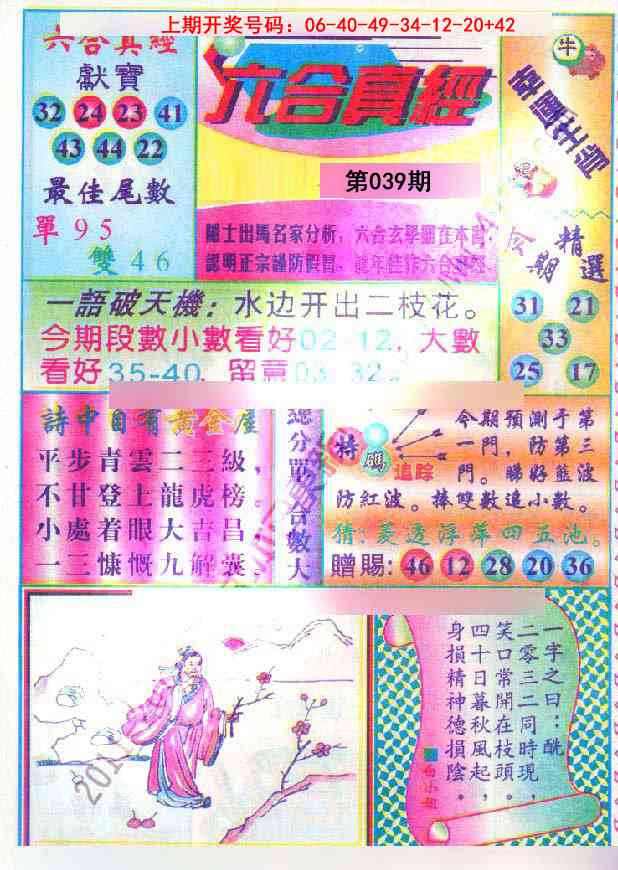 上期开奖号码：06-40-49-34-12-20+42
六合真經
獻寶
32 24 23 41
43 44 22
最佳尾數
單 9 5
雙 4 6
六合真經
第039期
認明正宗謹防假冒，龍年佳作六合真經
牛
期精選
31 21
33
25 17
一語破天機：水边开出二枝花。
今期段數小數看好02-12，大數
看好35-40，留意03 32。
詩中自有黃金屋
平步青雲二三級，
不甘登上龍虎榜。
小處着眼大吉昌，
一三慷慨九解囊。
總分單
合數大
特碼
追踪
今期預測于第
一門，防第三
門。睇好藍波
防紅波。捧雙數追小數。
猜：菱透浮萍四五池。
贈賜：46 12 28 20 36
一字之曰：醜
二零三二同時現，
笑口常開在枝頭。
四十日暮秋風起，
身損精神德損陰。
白小姐